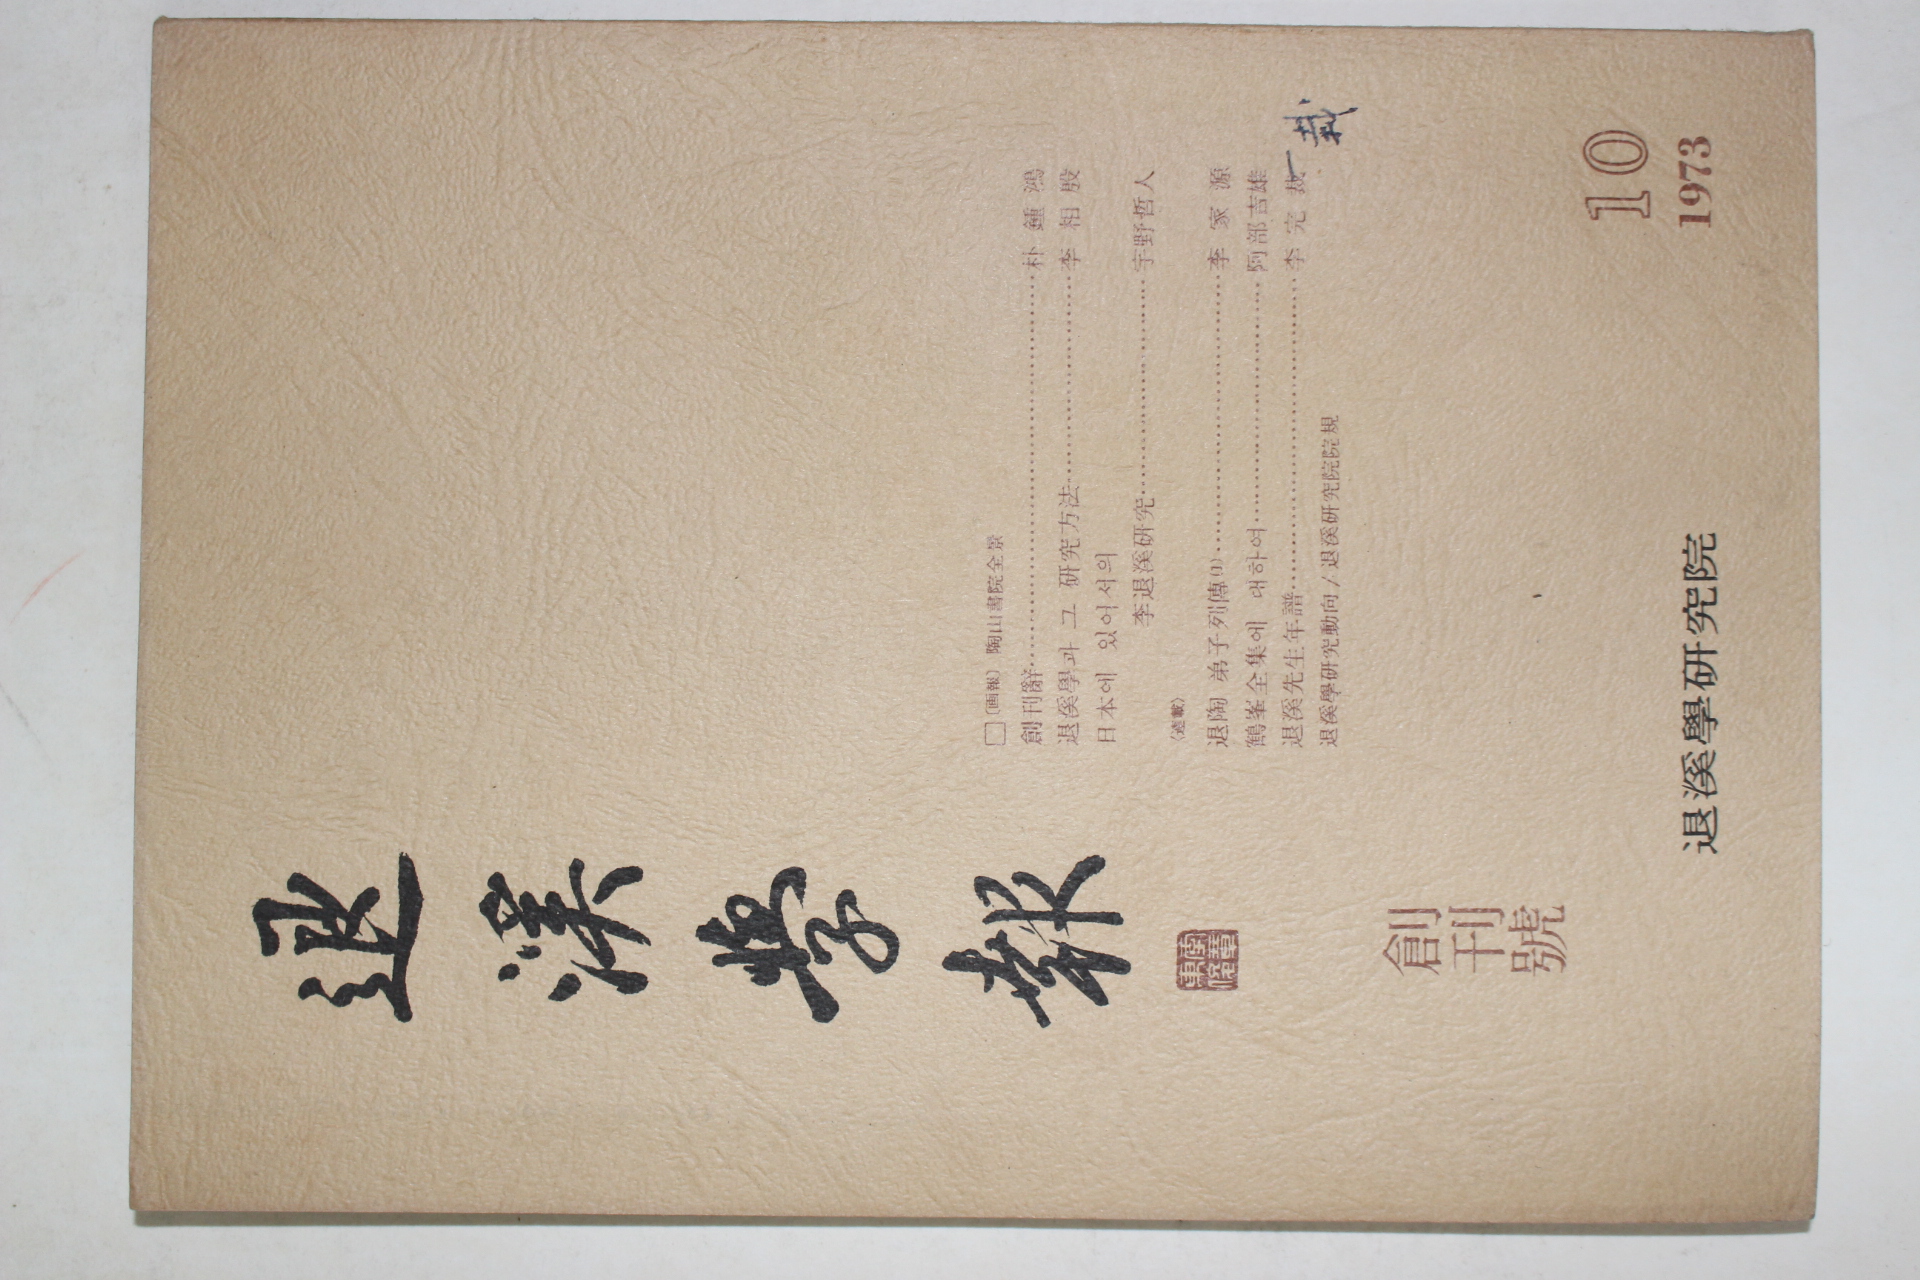 退溪學報
創刊號
□〔画報〕陶山書院全景
創刊辭……………………朴鍾鴻
退溪學과 그 研究方法……………………李相殷
日本에 있어서의
李退溪研究……………………宇野哲人
〈連載〉
退陶 弟子列傳(1)……………………李家源
鶴峯全集에 대하여……………………阿部吉雄
退溪先生年譜……………………李完裁
栽
退溪學研究動向 / 退溪研究院院規
10
1973
退溪學研究院